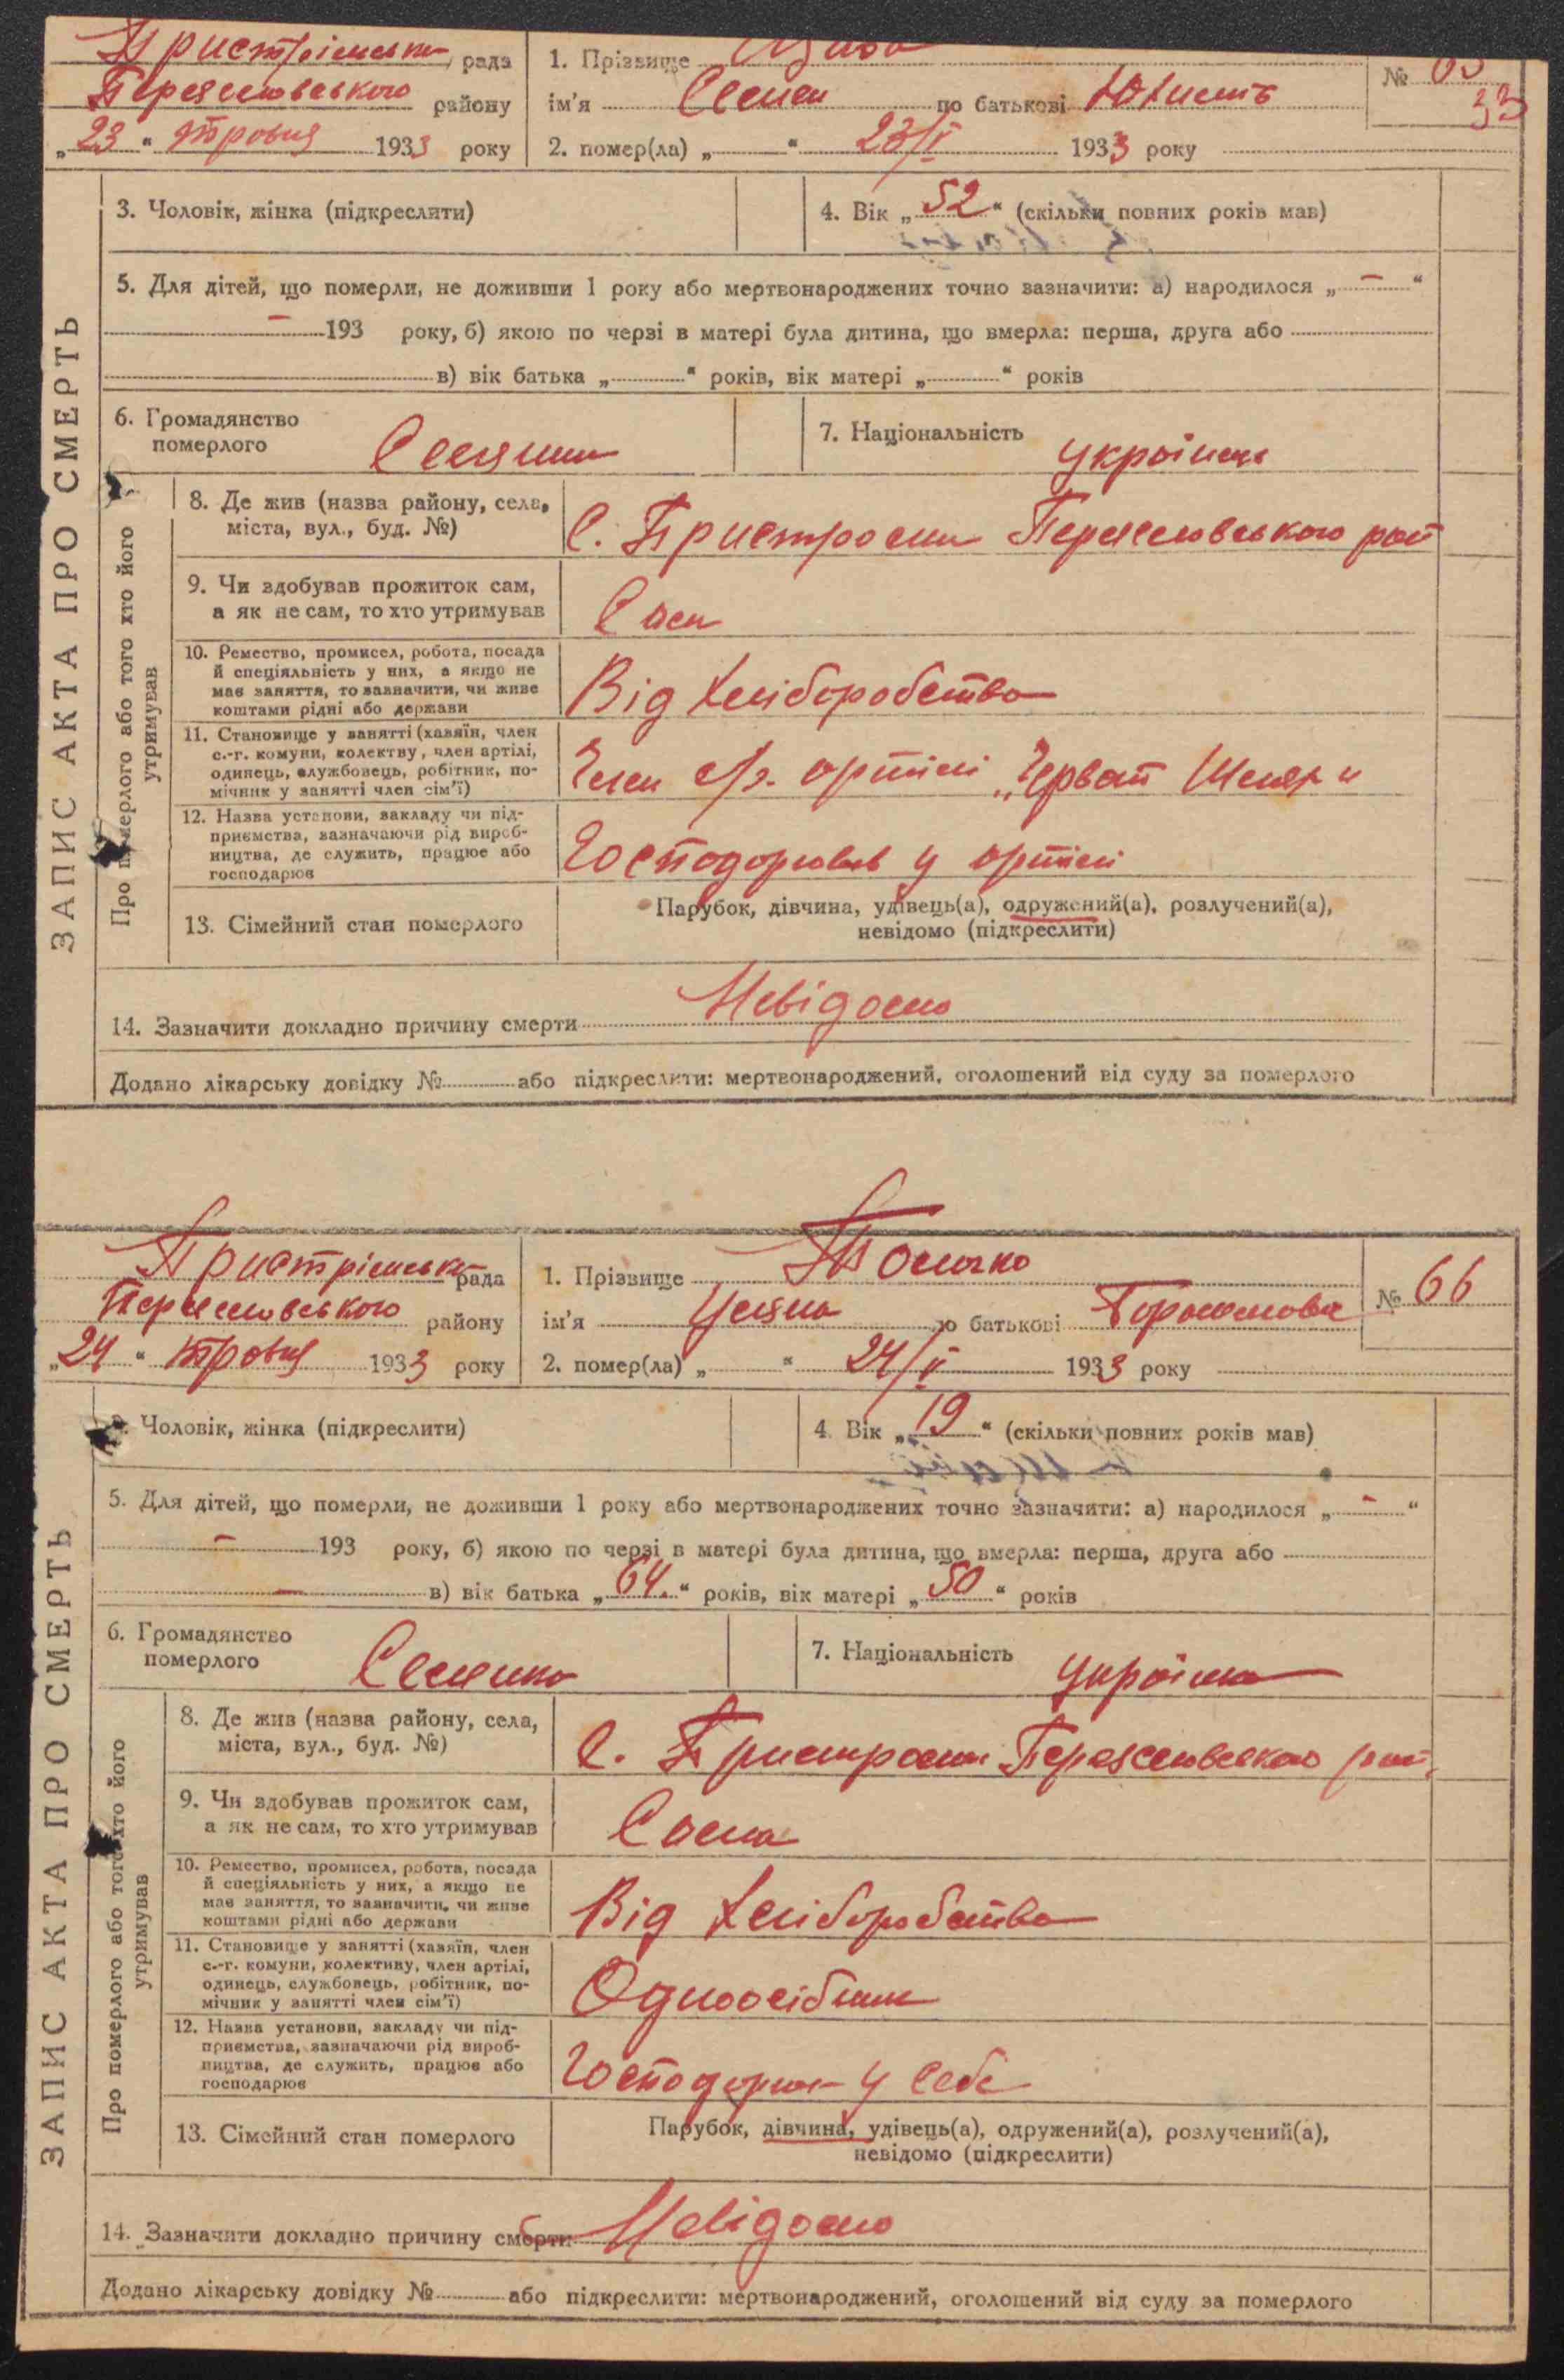 Пристрімська рада
Переяславського району
„23" травня 1933 року
1. Прізвище
ім'я Семен по батькові
2. помер(ла) „ " 23/V 1933 року
№ 65
33
ЗАПИС АКТА ПРО СМЕРТЬ
3. Чоловік, жінка (підкреслити)
4. Вік „52" (скільки повних років мав)
5. Для дітей, що померли, не доживши 1 року або мертвонароджених точно зазначити: а) народилося „ — "
— 193 року, б) якою по черзі в матері була дитина, що вмерла: перша, друга або
в) вік батька „ " років, вік матері „ " років
6. Громадянство
померлого Селянин
7. Національність українець
Про померлого або того хто його
утримував
8. Де жив (назва району, села,
міста, вул., буд. №)
С. Пристроми Переяславського рай
9. Чи здобував прожиток сам,
а як не сам, то хто утримував
Сам
10. Ремество, промисел, робота, посада
й спеціяльність у них, а якщо не
має заняття, то зазначити, чи живе
коштами рідні або держави
Від хліборобства
11. Становище у занятті (хазяїн, член
с.-г. комуни, колектву, член артілі,
одинець, службовець, робітник, по-
мічник у занятті член сім'ї)
Член с/г. артілі „Черв
12. Назва установи, закладу чи під-
приємства, зазначаючи рід вироб-
ництва, де служить, працює або
господарює
Господорював у артілі
13. Сімейний стан померлого
Парубок, дівчина, удівець(а), одружений(а), розлучений(а),
невідомо (підкреслити)
14. Зазначити докладно причину смерти Невідомо
Додано лікарську довідку № або підкреслити: мертвонароджений, оголошений від суду за померлого
Пристрімська рада
Переяславського району
„24" травня 1933 року
1. Прізвище
ім'я Уляна по батькові
2. помер(ла) „ " 24/V 1933 року
№ 66
ЗАПИС АКТА ПРО СМЕРТЬ
3. Чоловік, жінка (підкреслити)
4. Вік „19" (скільки повних років мав)
5. Для дітей, що померли, не доживши 1 року або мертвонароджених точно зазначити: а) народилося „ — "
— 193 року, б) якою по черзі в матері була дитина, що вмерла: перша, друга або
— в) вік батька „64." років, вік матері „50" років
6. Громадянство
померлого Селянка
7. Національність українка
Про померлого або того хто його
утримував
8. Де жив (назва району, села,
міста, вул., буд. №)
С. Пристроми Переяславського рай.
9. Чи здобував прожиток сам,
а як не сам, то хто утримував
Сама
10. Ремество, промисел, робота, посада
й спеціяльність у них, а якщо не
має заняття, то зазначити, чи живе
коштами рідні або держави
Від хліборобства
11. Становище у занятті (хазяїн, член
с.-г. комуни, колективу, член артілі,
одинець, службовець, робітник, по-
мічник у занятті член сім'ї)
Одноосібник
12. Назва установи, закладу чи під-
приємства, зазначаючи рід вироб-
ництва, де служить, працює або
господарює
у себе
13. Сімейний стан померлого
Парубок, дівчина, удівець(а), одружений(а), розлучений(а),
невідомо (підкреслити)
14. Зазначити докладно причину смерти Невідомо
Додано лікарську довідку № або підкреслити: мертвонароджений, оголошений від суду за померлого